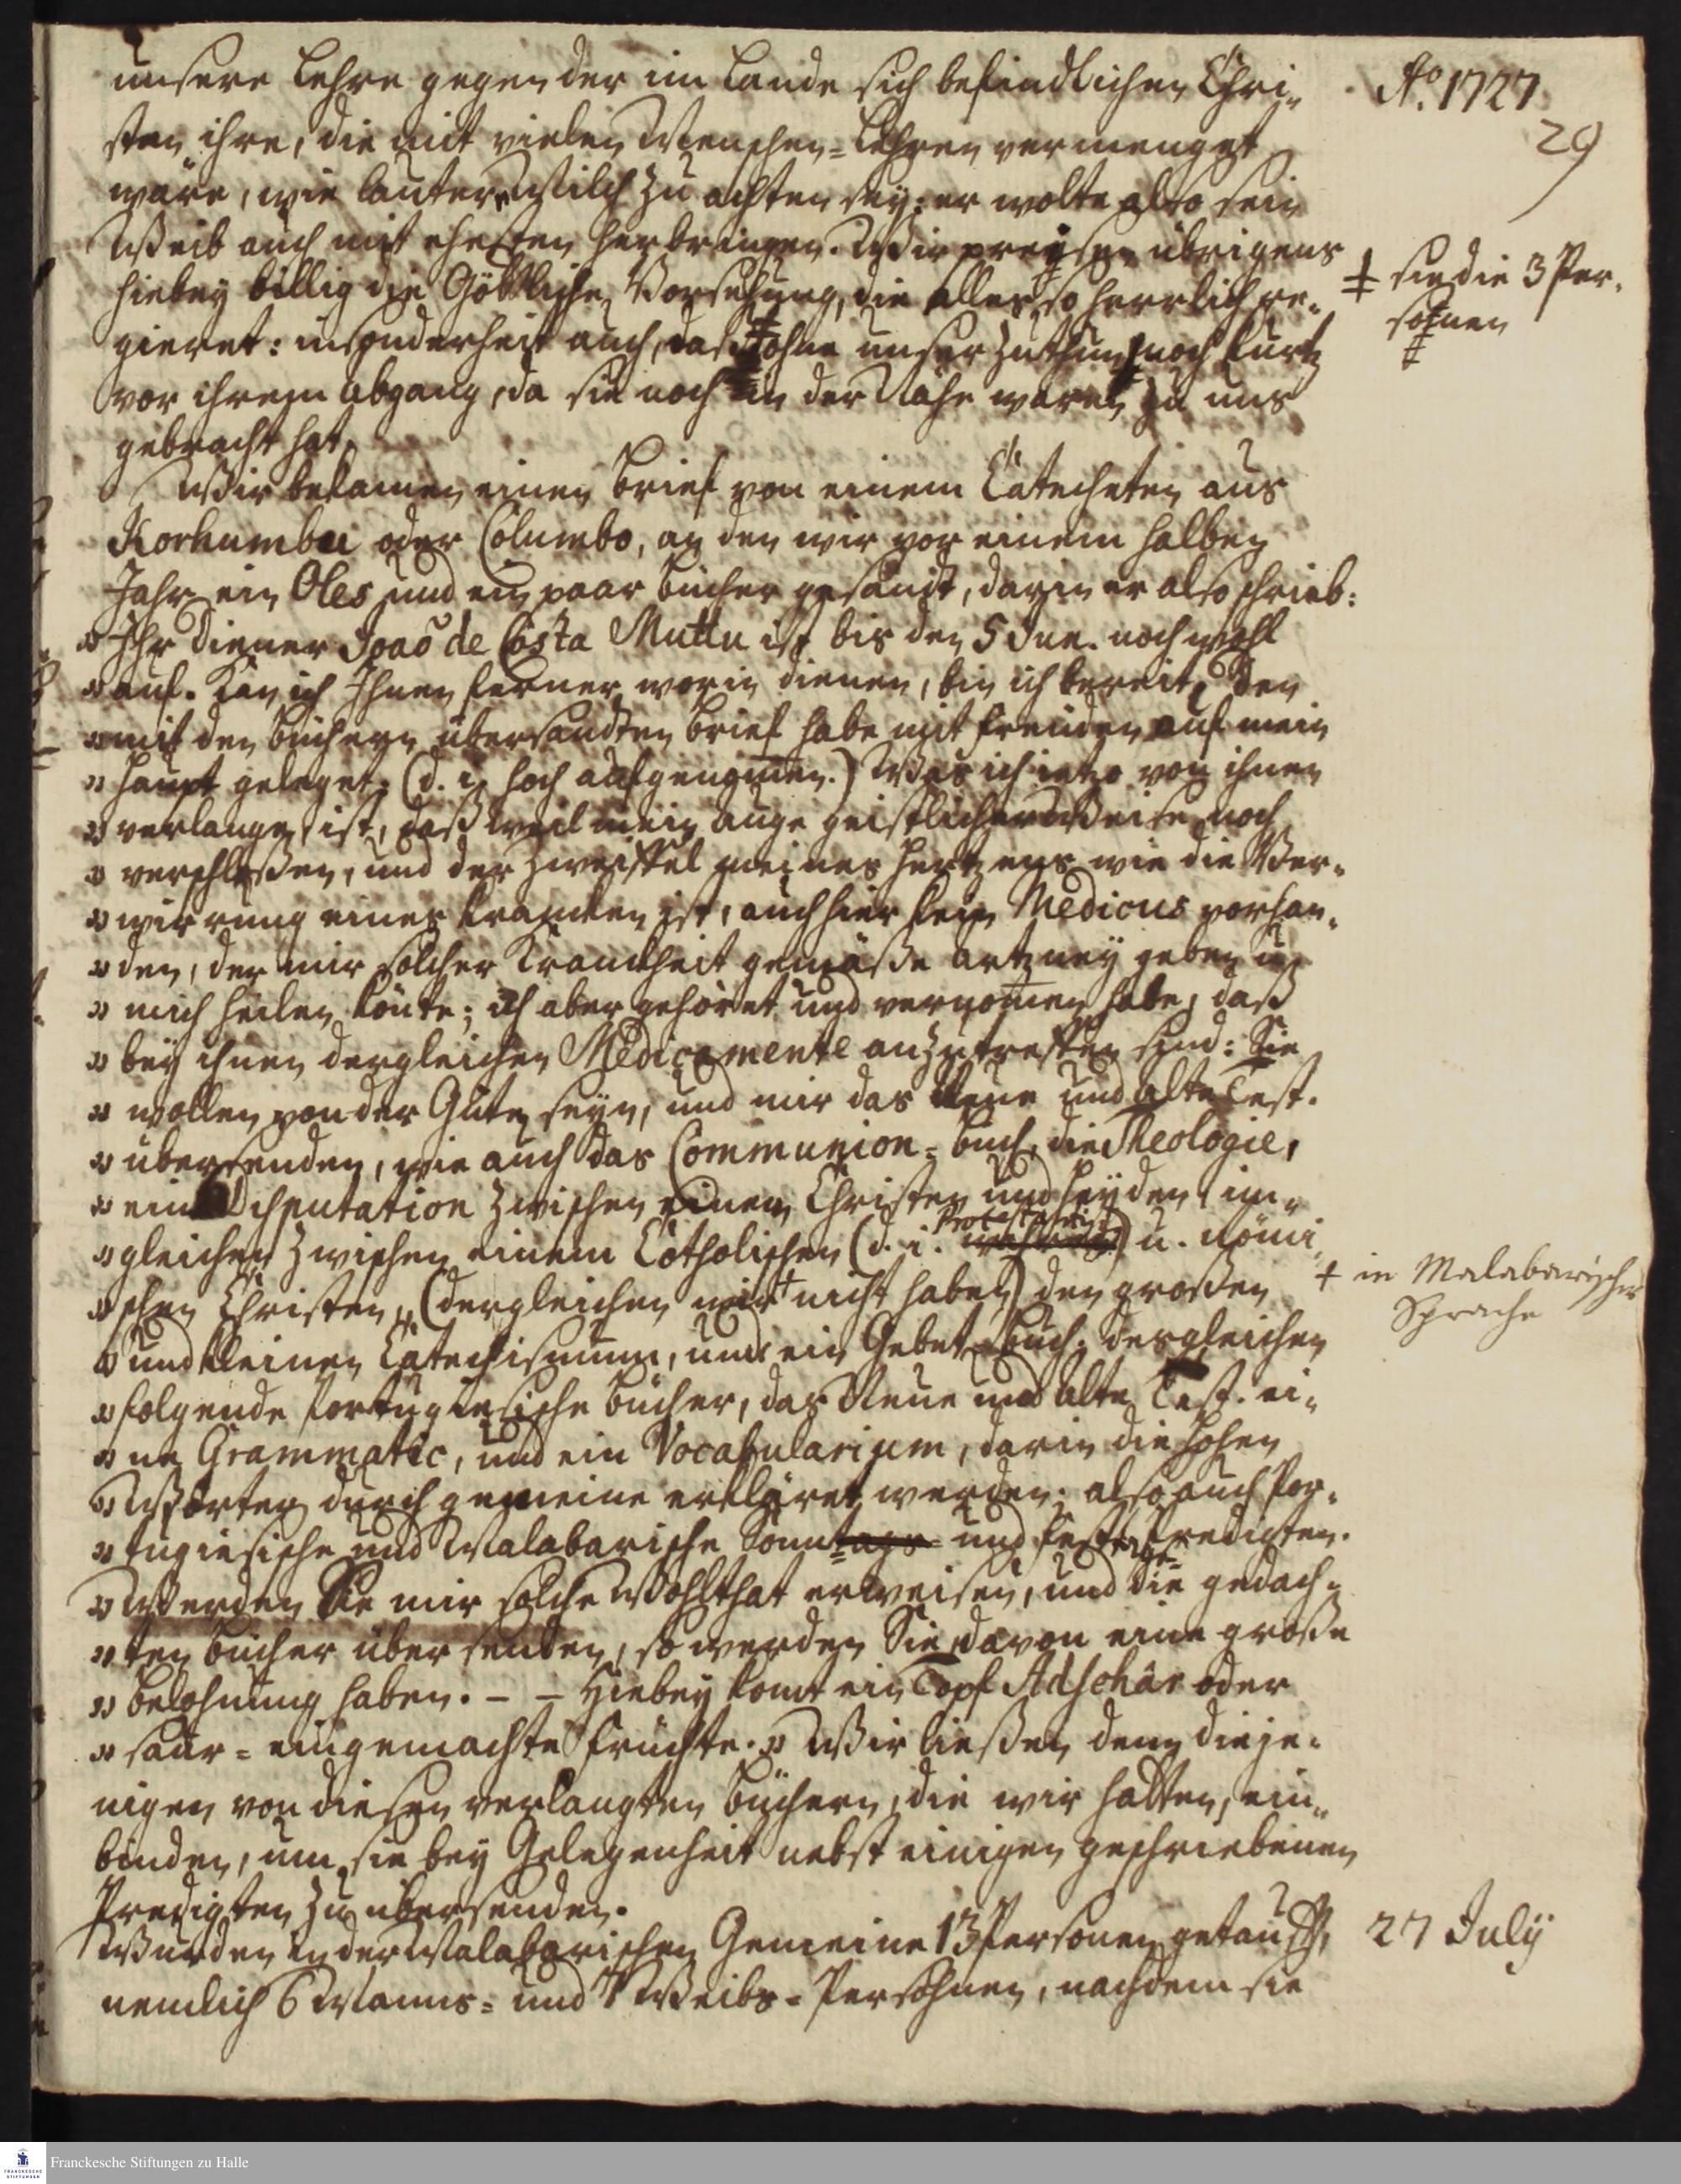 Ao. 1727
29
unsere Lehre gegen der im Lande sich befindlichen Chri-
sten ihre, die mit vielen Menschen-Lehren vermenget
wäre, wie lautere Milch zu achten sey: er wolte also sein
Weib auch mit ehesten herbringen. Wir preisen übrigens
hiebey billig die Göttliche Vorsehung, die alles so herrlich re-
gieret: insonderheit auch, daß ‡ ohne unser Zuthun noch kurtz
‡ sie die 3 Per-
sohnen
vor ihrem Abgang, da sie noch in der Nähe waren zu uns
gebracht hat.
Wir bekamen einen Brief von einem Catecheten aus
Korhumbu oder Columbo, an den wir vor einem halben
Jahr ein Oles und ein paar Bücher gesandt, darin er also schrieb:
" Ihr Diener Joaõ de Costa Muttu ist bis den 5 Jun. noch wohl
" auf. Kan ich Ihnen ferner worin dienen, bin ich bereit. Den
" mit den Büchern übersandten Brief habe mit Freuden auf mein
" Haupt geleget. (d. i. hoch aufgenomen.) Was ich ietzo von ihnen
" verlange, ist, daß weil mein Auge geistlicher Weise noch
" verschloßen, und der Zweiffel meines Hertzens wie die Ver-
" wirrung eines Krancken ist, auch hier kein Medicus vorhan-
" den, der mir solcher Kranckheit gemäße Artzney geben u.
" mich heilen könte; ich aber gehöret und vernomen habe, daß
" bey ihnen dergleichen Medicamente anzutreffen sind: Sie
" wollen von der Güte seyn, und mir das Neue und Alte Test.
" übersenden, wie auch das Communion-Buch, die Theologie,
" ein Disputation zwischen einem Christen und Heyden, im-
" gleichen zwischen einem Catholischen (d. i. Protestanti.) u. Römi-
" schen Christen, (dergleichen wir † nicht haben) den großen
† in Malabarischer
Sprache
" und kleinen Catechismum, und ein Gebet-Buch; desgleichen
" folgende Portugiesische Bücher, das Neue und Alte Test. ei-
" ne Grammatic, und ein Vocabularium, darin die hohen
" Wörter durch gemeine erkläret werden; also auch Por-
" tugiesische und Malabarische Sonntags- und Festtags-Predigten.
" Werden Sie mir solche Wohlthat erweisen, und die gedach-
" ten Bücher übersenden, so werden Sie davon eine große
" Belohnung haben. - - Hiebey komt ein Topf Adschâr oder
" saur-eingemachte Früchte. " Wir ließen denn dieje-
nigen von diesen verlangten Büchern, die wir hatten, ein-
binden, um sie bey Gelegenheit nebst einigen geschriebenen
Predigten zu übersenden.
27 July
Wurden in der Malabarischen Gemeine 13 Personen getaufft,
nemlich 6 Manns- und 7 Weibs-Persohnen, nachdem sie
Franckesche Stiftungen zu Halle